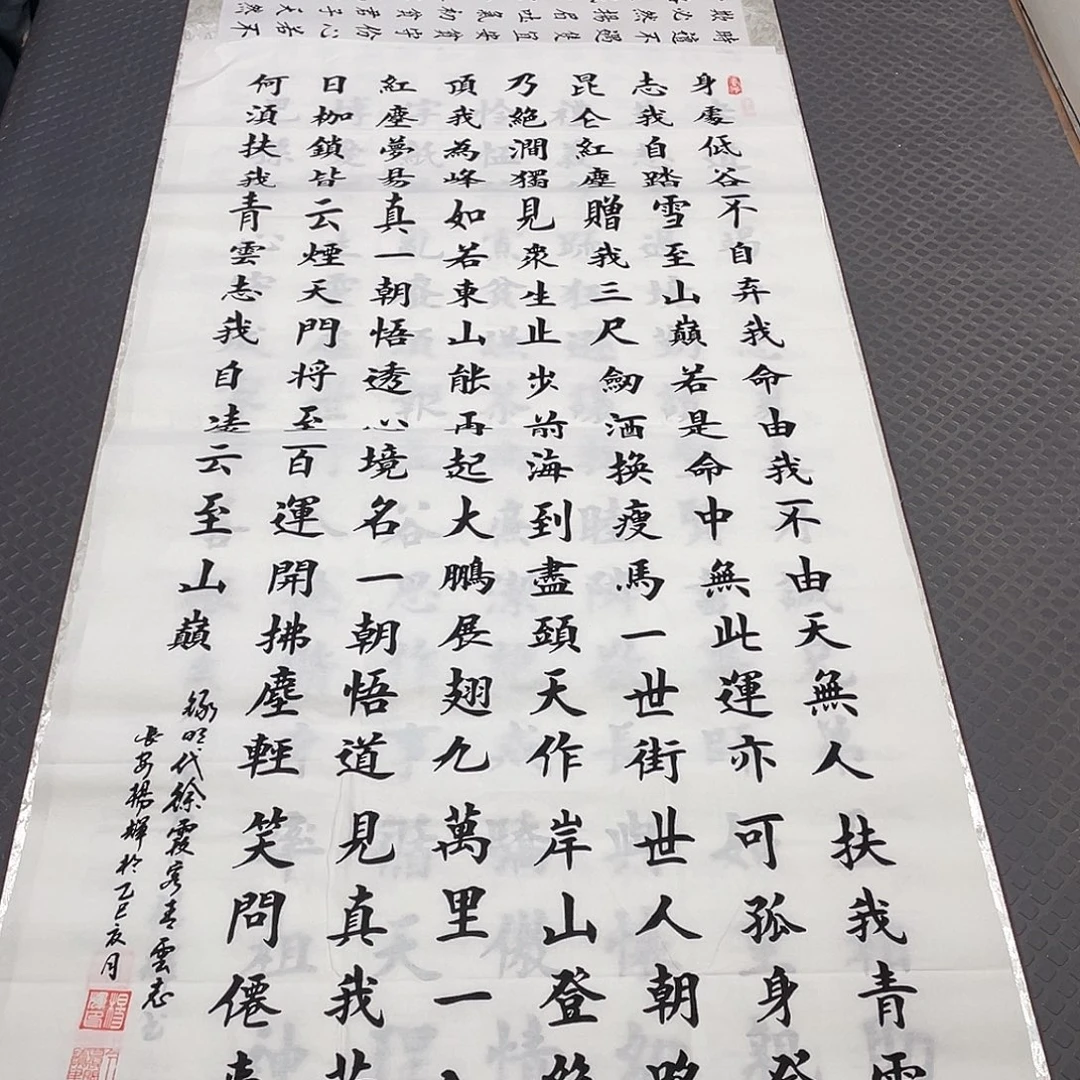 身處低谷不自弃我命由我不由天無人扶我青雲
志我自踏雪至山巔若是命中無此運亦可孤身登
昆仑紅塵贈我三尺劒酒換瘦馬一世街世人朝
乃絕澗獨見衆生止步前海到盡頭天作岸山登絶
頂我為峰如若東山能再起大鵬展翅九萬里一入
紅塵夢易真一朝悟透心境名一朝悟道見真我昔
日枷鎖皆云煙天門将至百運開拂塵輕笑問僊
何須扶我青雲志我自凌云至山巔
録明代徐霞客青雲志
長安楊輝於乙巳亥月